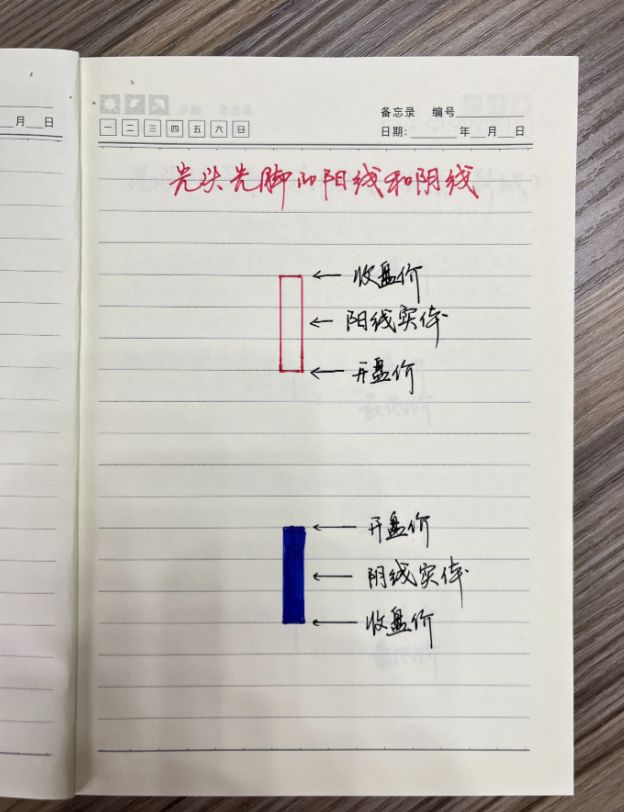 月 日
备忘录 编号
一 二 三 四 五 六 日
日期: 年 月 日
光头光脚的阳线和阴线
收盘价
阳线实体
开盘价
开盘价
阴线实体
收盘价